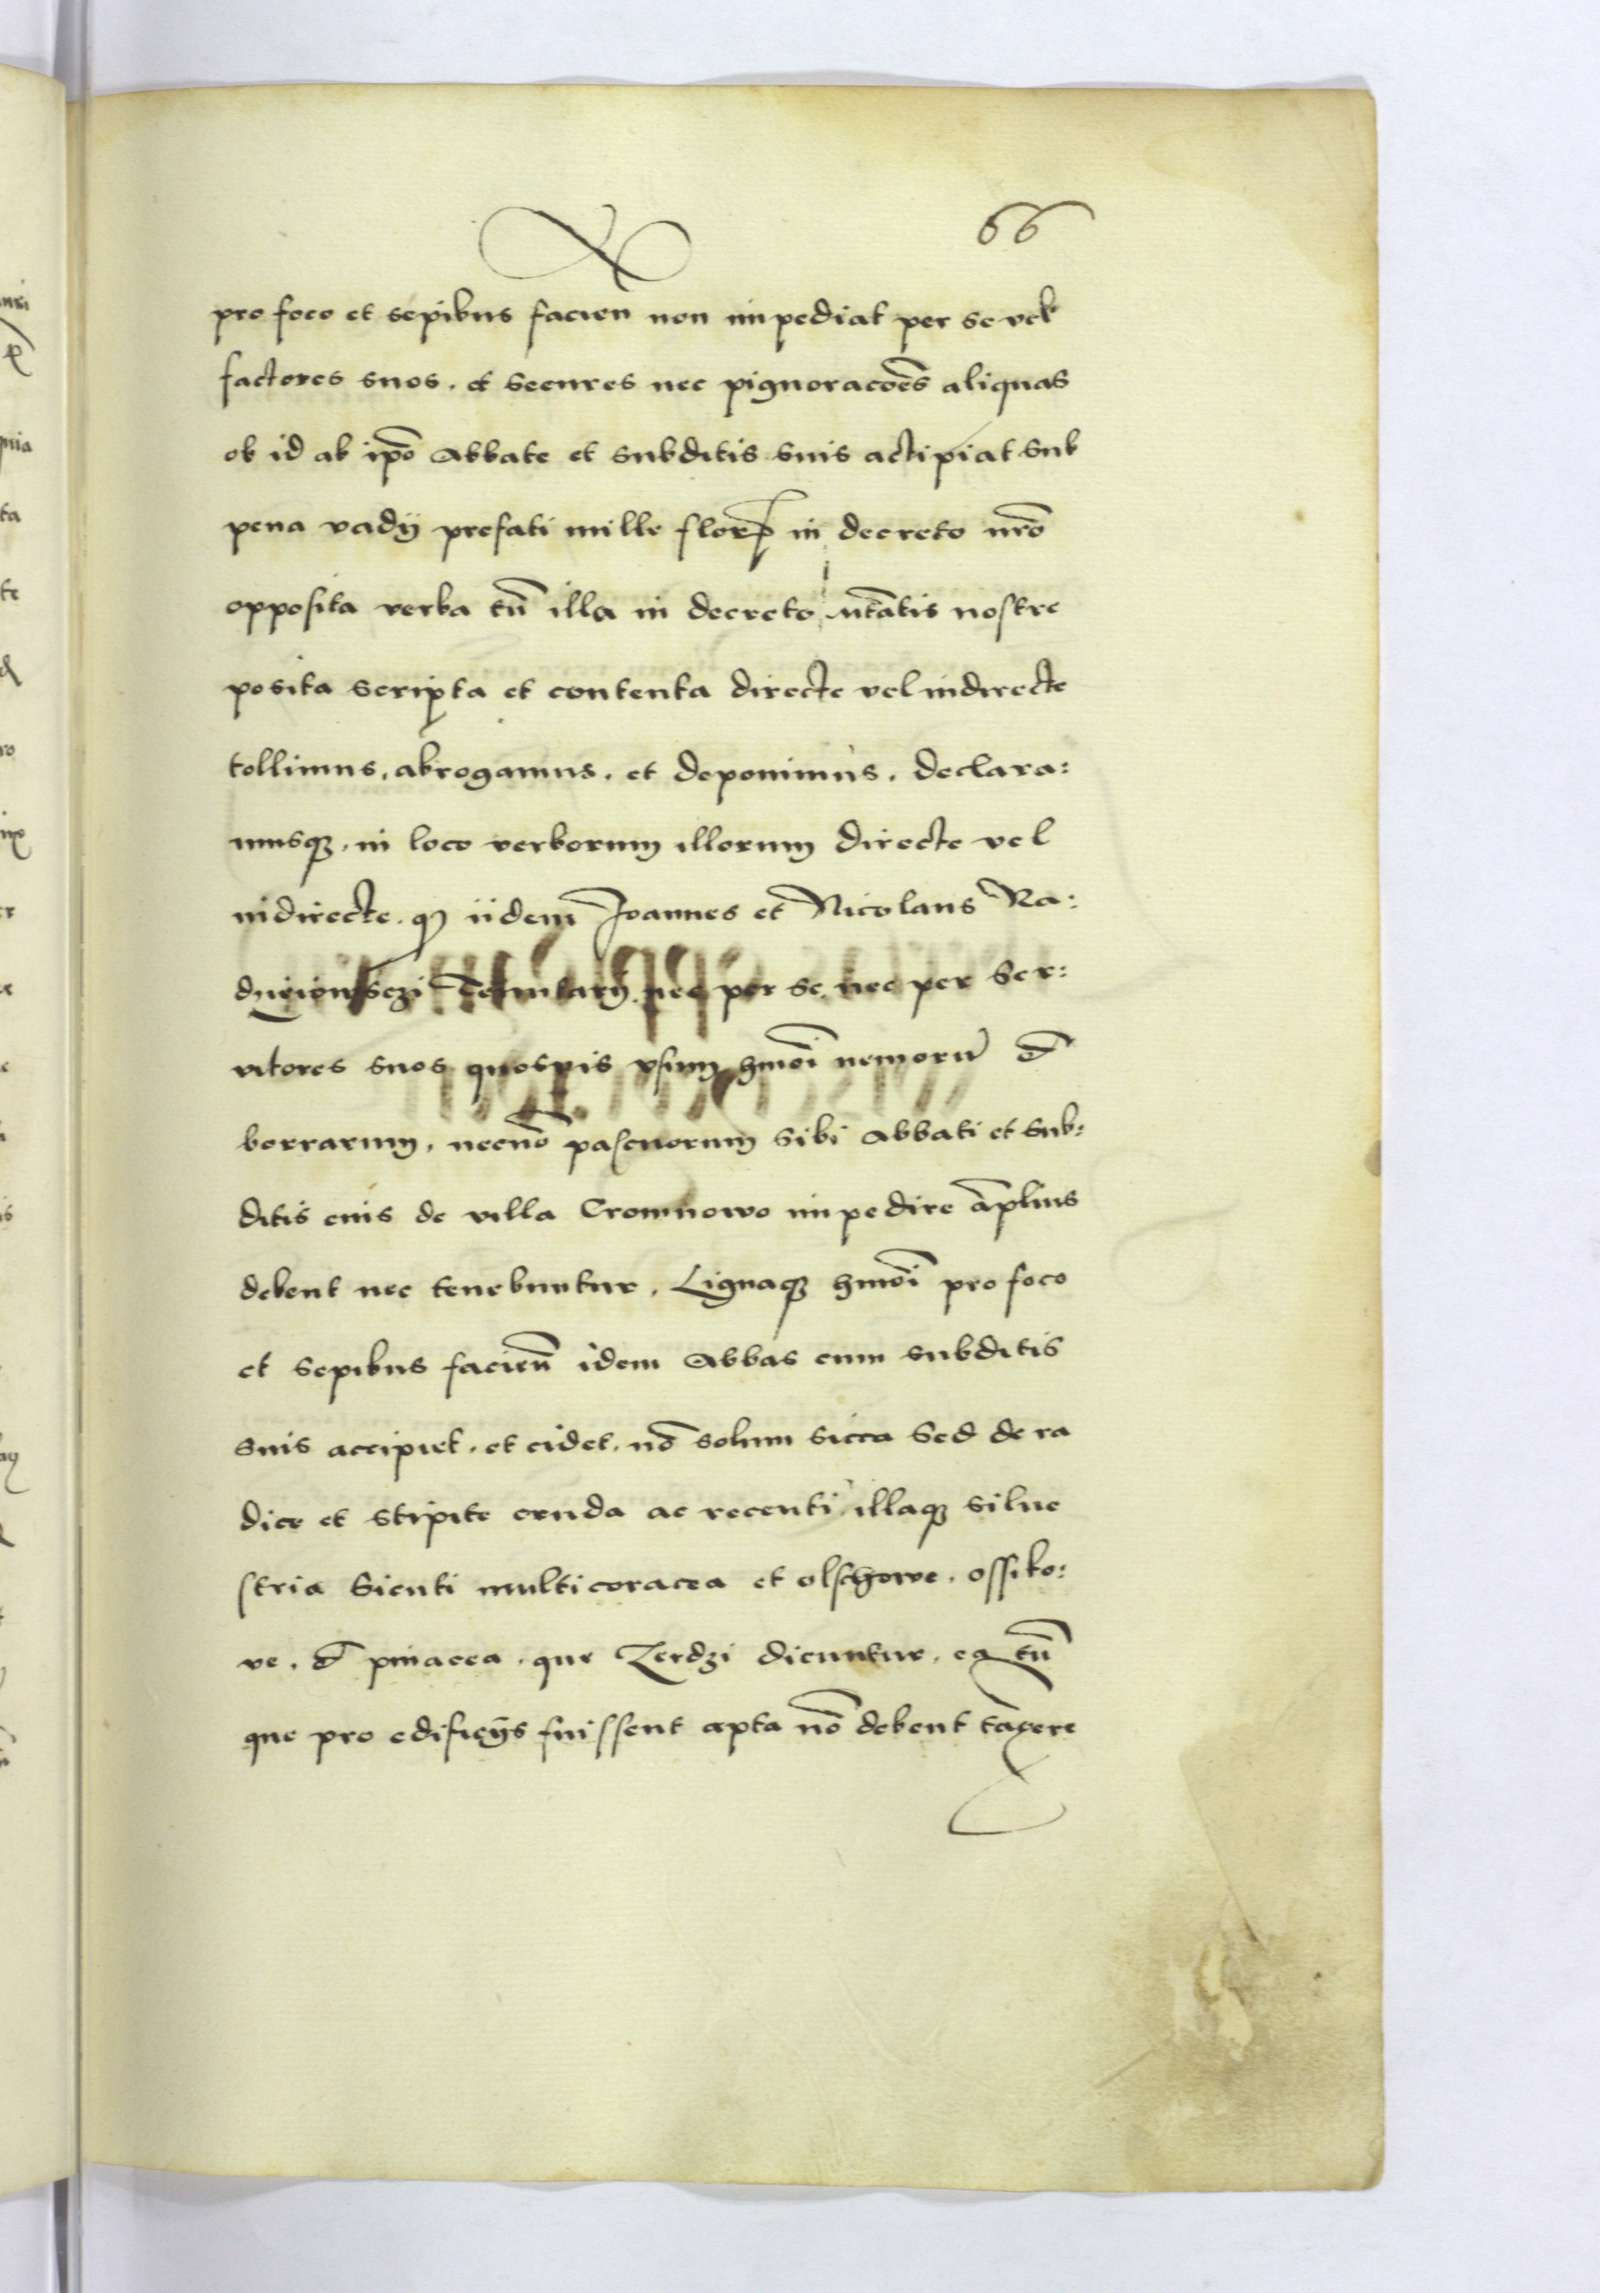 66
pro foco et sepibus facien non impediat per se vel
factores suos. et secures nec pignoracōes aliquas
ob id ab ip̄o Abbate et subditis suis actipiat sub
pena vadij prefati mille flor in decreto nr̄o
opposita verba tn̄ illa in decreto nostre
posita scripta et contenta directe vel indirecte
tollimus, abrogamus. et deponimus. declara:
musqȝ. in loco verborum illorum directe vel
indirecte. qȝ iidem Joannes et Nicolaus Ra:
nec per se nec per ser:
vitores suos quosvis vsum hmōi nemorū et
borrarum, necnō pascuorum sibi Abbati et sub:
ditis eius de villa Cromnowo impedire āplius
debent nec tenebuntur. Lignaqȝ hmōi pro foco
et sepibus facien̄ idem Abbas cum subditis
suis accipiet. et cidet. nō solum sicca sed de ra
dice et stipite cruda ac recenti illaqȝ silue
stria sicuti multicoracea et olschowe. ossiko:
ve. et pinacea. que Zerdzi dicuntur. ea tn̄
que pro edificijs fuissent apta nō debent tāgere